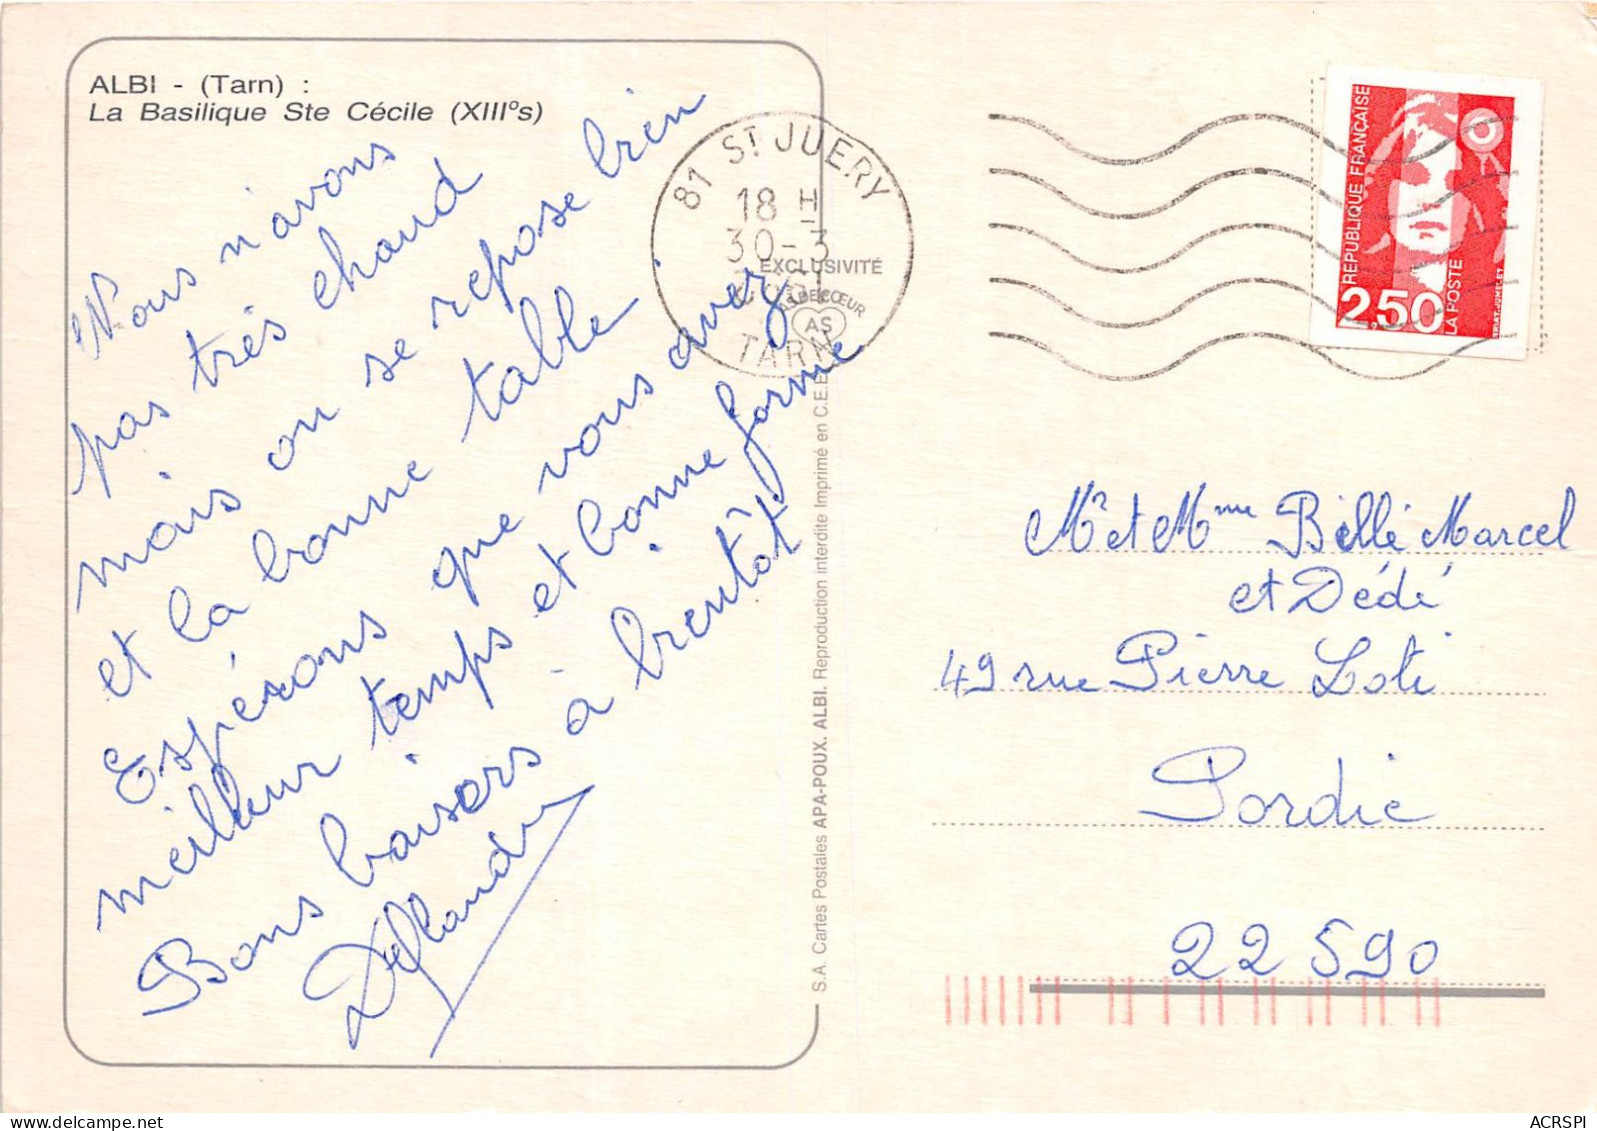 ALBI - (Tarn) :
La Basilique Ste Cécile (XIII°s)
Nous n'avons
pas très chaud
mais on se repose bien
et la bonne table
Espérons que vous avez
meilleur temps et bonne forme
Bons baisers à bientôt
81 ST JUERY
18 H
30-3
TARN
EXCLUSIVITÉ
AS DE CŒUR
AS
S.A. Cartes Postales APA-POUX. ALBI. Reproduction interdite Imprimé en C.E.E
RÉPUBLIQUE FRANÇAISE
2,50
LA POSTE
Mr et Mme Bellé Marcel
et Dédé
49 rue Pierre Loti
Pordic
22590
ACRSPI